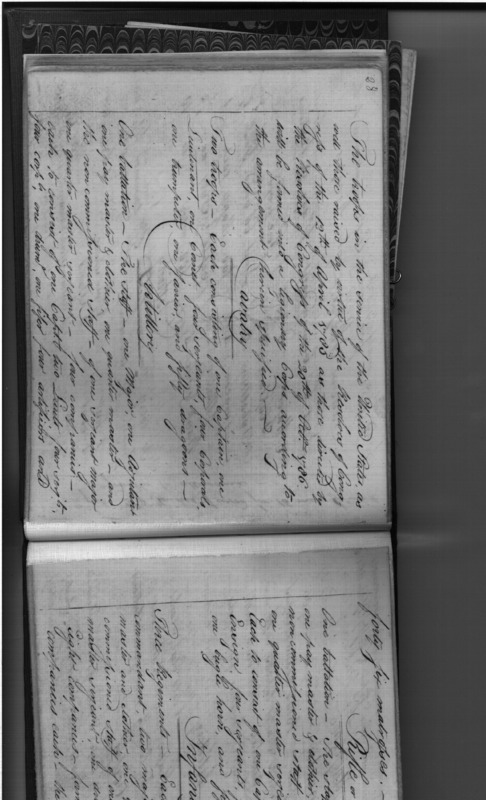 28
The troops in the service of the United States, as
well those raised by virtue of the Resolve of Congress
of the 12th of April 1785 as those directed by
the Resolves of Congress of the 20th Octr. 1786
will be formed into a legionary Corps according to
the arrangement herein specified.
Cavalry
Two troops — Each consisting of one Captain, one
Lieutenant, one Cornet, four Serjeants, four Corporals
one trumpeter, one farrier, and fifty dragoons —
Artillery
One battalion — The Staff — one Major, one Adjutant
one pay master & clothier, one quarter master — and
the non commissioned Staff — of one Serjeant major
one quarter master serjeant — four companies
each to consist of one Captn. two Lieuts. four serjts.
four corpls. one drum, one fifer, four artificers and
forty six matrosses —
Rifle
One battalion — The Staff
one pay master & clothier
non-commissioned Staff
one quarter master
Each to consist of one Cap
Ensign, four Serjeants
one bugle horn, and
Infan
Three Regiments — Eac
commandant, two maj
master and clothier
commissioned Staff of one
master Serjeant
Eight Companies — four
companies each